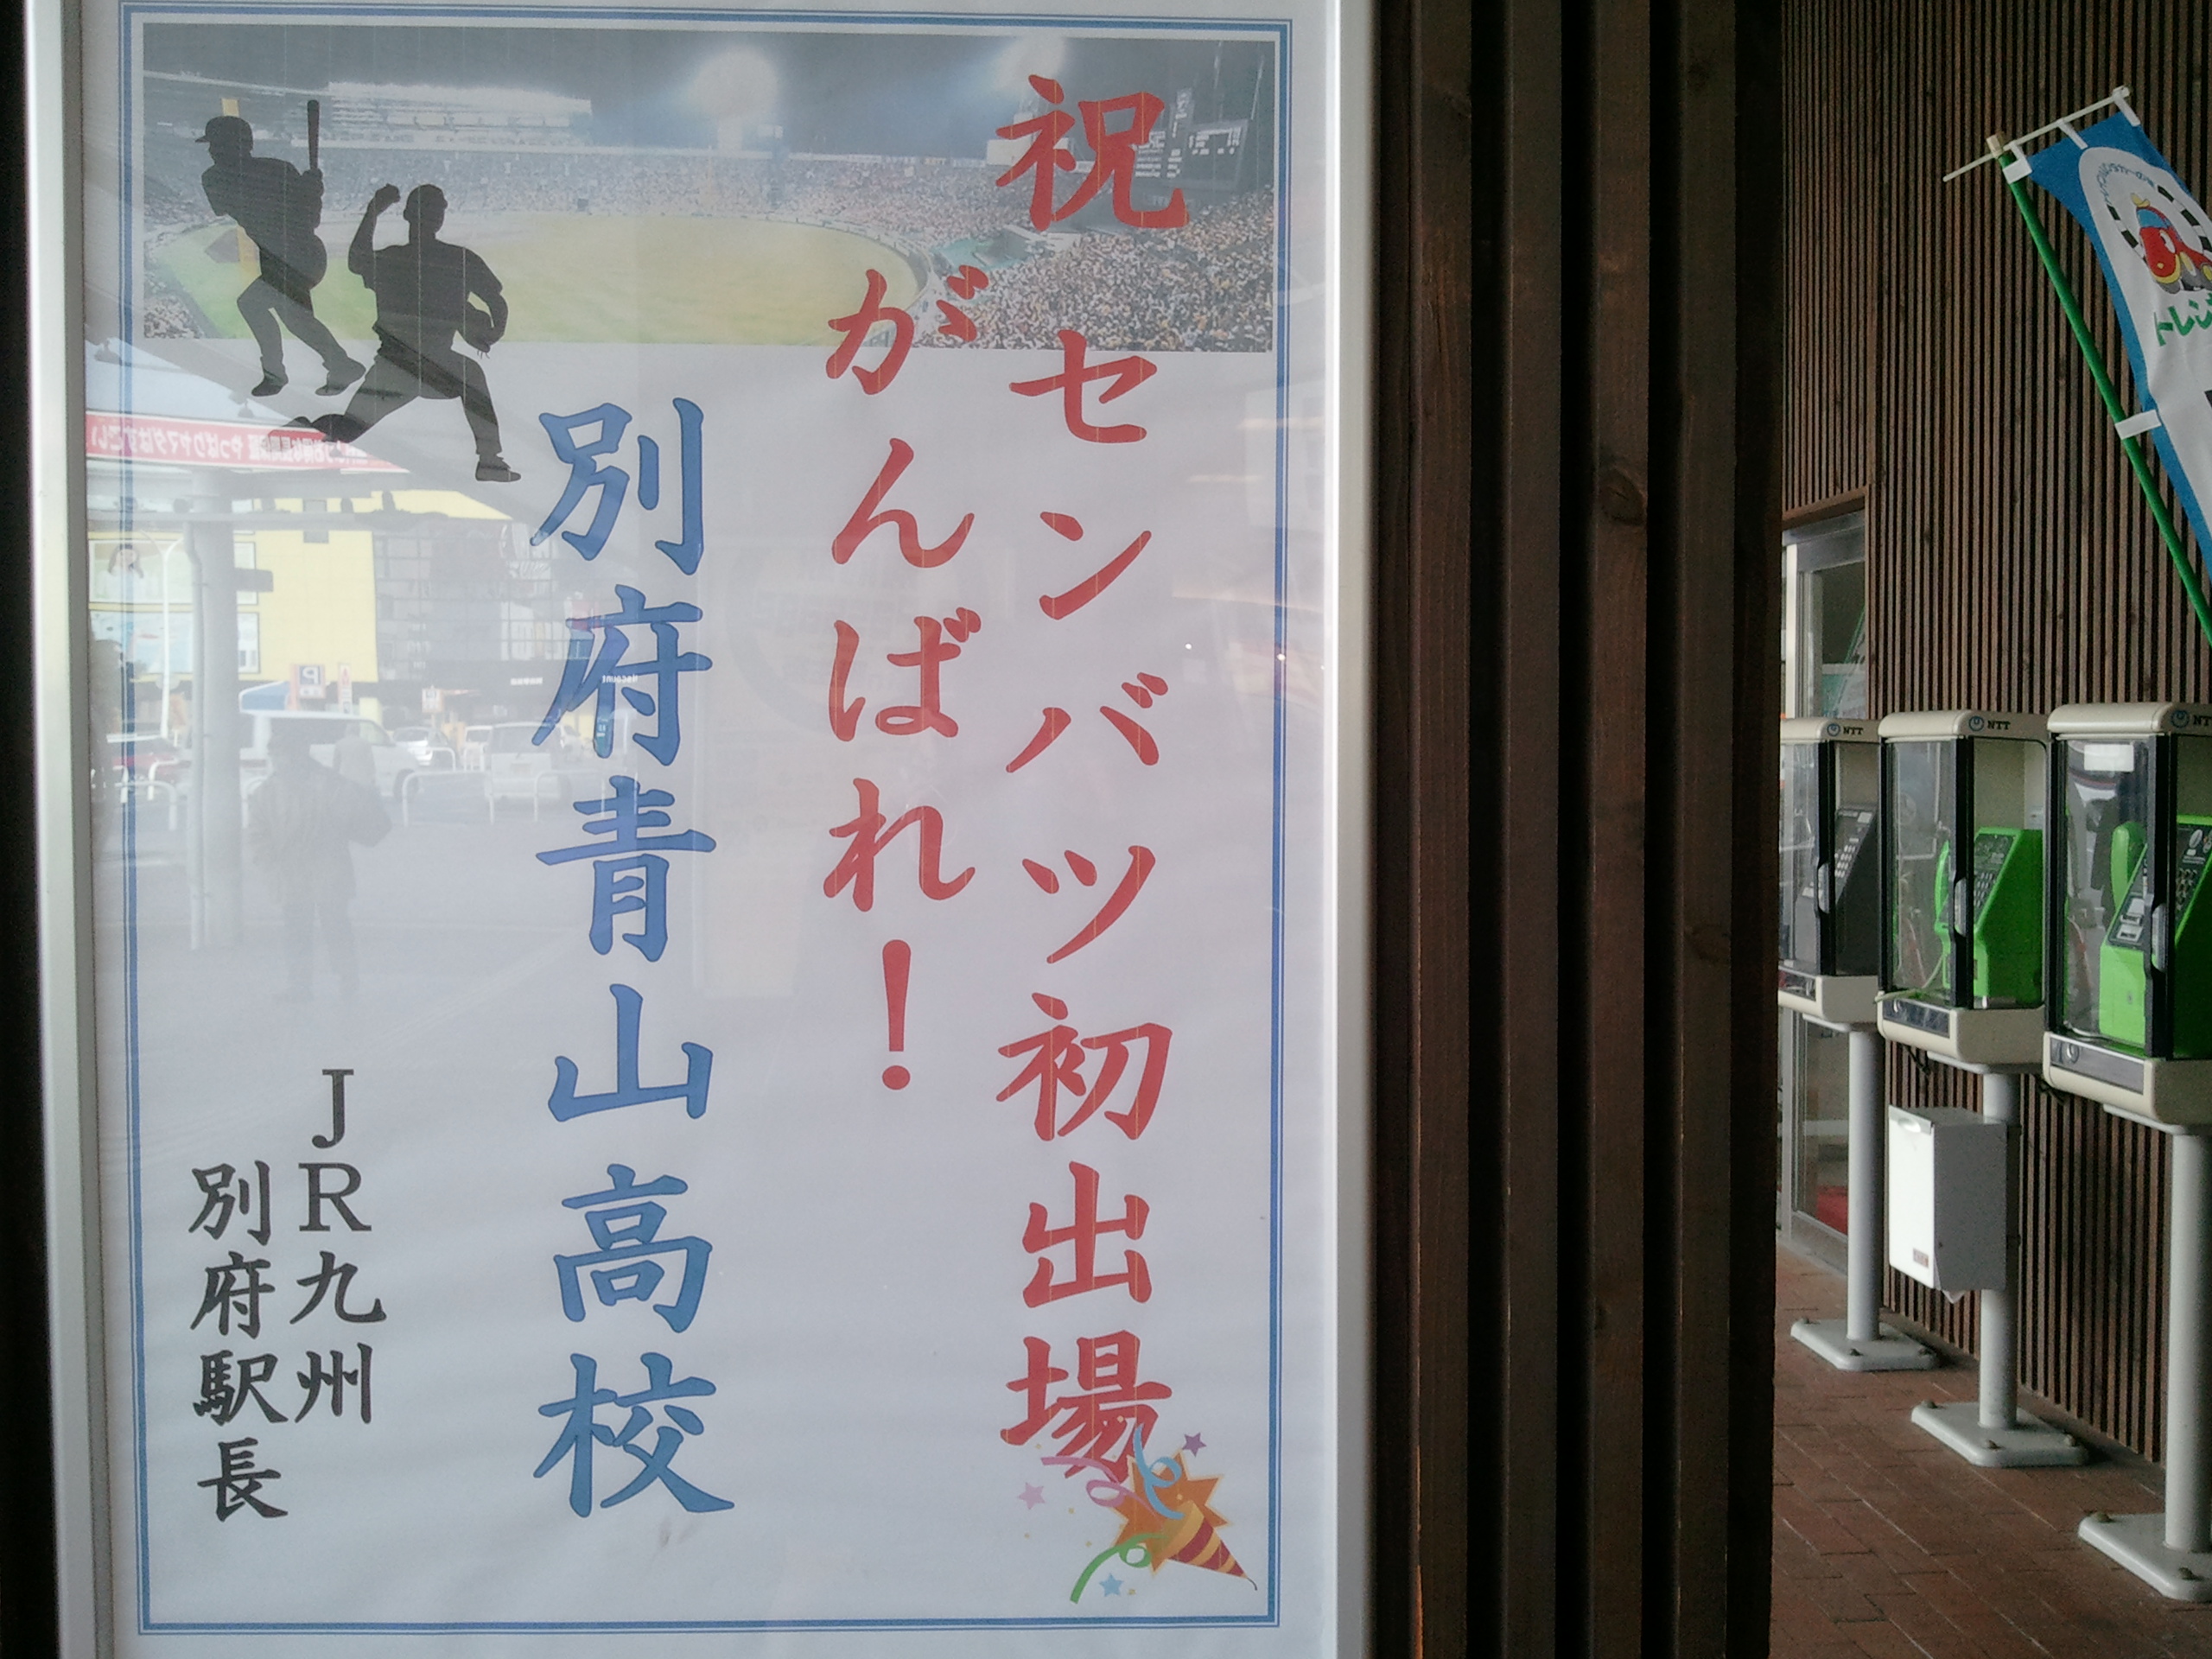 祝 センバツ初出場
がんばれ！
別府青山高校
JR九州
別府駅長
NTT
NTT
NTT
トレン